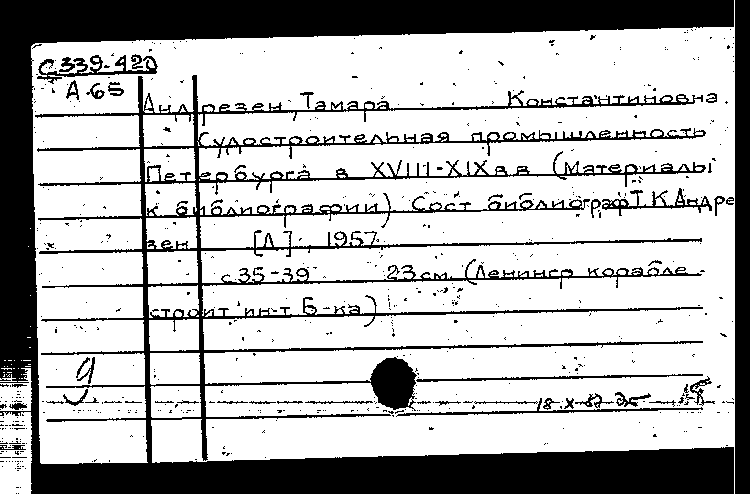 С339-420
А-65
Андрезен, Тамара Константиновна.
Судостроительная промышленность
Петербурга в XVIII-XIX вв (Материалы
к библиографии). Сост библиограф Т.К.Андре
зен [Л], 1957.
с 35-39 23 см. (Ленингр корабле-
строит ин-т Б-ка)
9
18.X-57